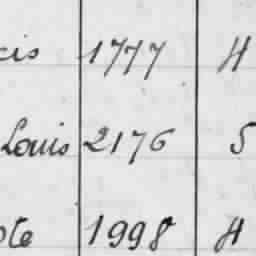 cis 1777 H
Louis 2176 5
ote 1998 H